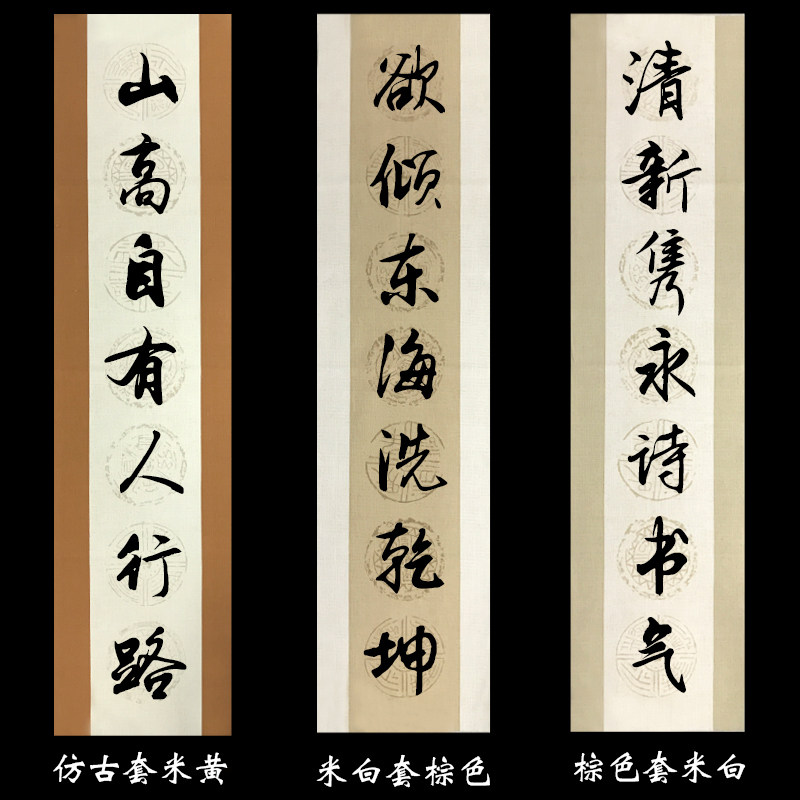 山高自有人行路
欲倾东海洗乾坤
清新隽永诗书气
仿古套米黄
米白套棕色
棕色套米白